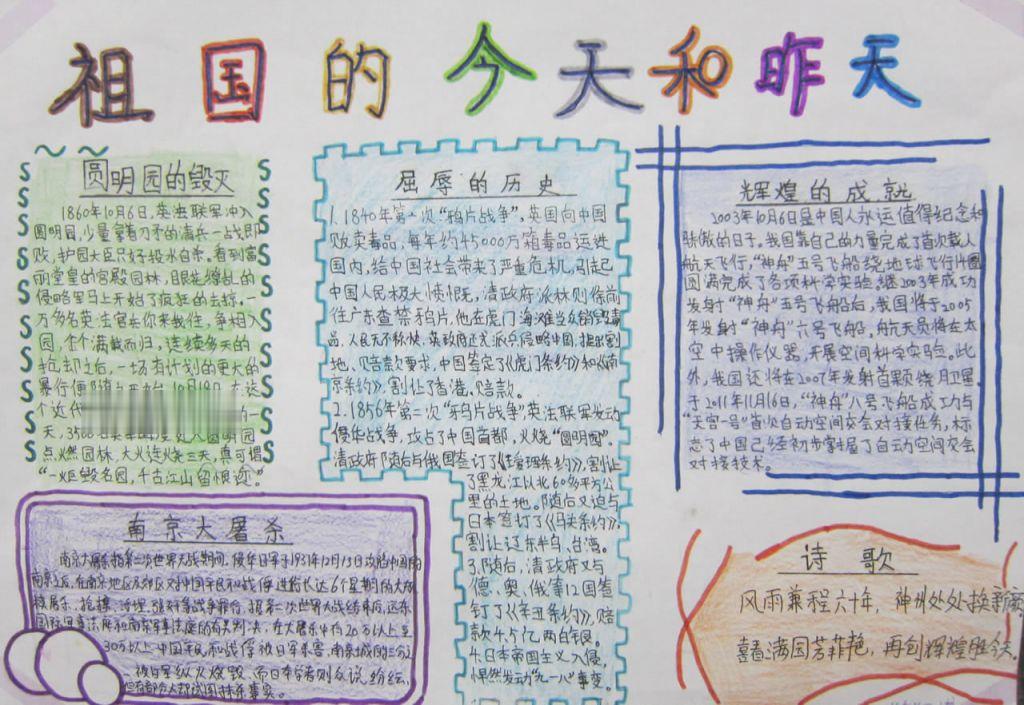 祖国的今天和昨天
圆明园的毁灭
1860年10月6日,英法联军冲入
圆明园,少量拿着刀矛的清兵一战即
败,护园大臣只好投水自杀,看到富
丽堂皇的宫殿园林,眼花缭乱的
侵略军马上开始了疯狂的去掠,一
万多名英法官兵你来我往,争相入
园,个个满载而归,连续多天的
抢劫过后,一场有计划的更大的
暴行便随之开始 10月18日
个近代 的一
天,3500
点燃园林,大火连烧三天,真可谓
“一炬毁名园,千古江山留恨迹。”
屈辱的历史
1.1840年第一次“鸦片战争”,英国向中国
贩卖毒品,每年约45000万箱毒品运进
国内,给中国社会带来了严重危机,引起
中国人民极大愤恨,清政府派林则徐前
往广东查禁鸦片,他在虎门海滩当众销毁毒
品,人民无不称快,英政府
地、赔款要求,中国签定了《虎门条约》和《南
京条约》,割让了香港、赔款。
2.1856年第二次“鸦片战争”英法联军发动
侵华战争,攻占了中国首都,火烧“圆明园”。
清政府随后与俄国签订了《瑷珲条约》,割让
了黑龙江以北60多平方公
里的土地。随后又迫与
日本签打了《马关条约》,
割让辽东半岛、台湾。
3.随后,清政府又与
德、奥、俄等12国签
订了《辛丑条约》,赔
款4.5亿两白银。
4.日本帝国主义入侵,
悍然发动“九一八”事变。
辉煌的成就
2003年10月6日是中国人永运值得纪念和
骄傲的日子,我国靠自己的力量完成了首次载人
航天飞行,“神舟”五号飞船绕地球飞行14圈
圆满完成了各项科学实验,继2003年成功
发射“神舟”五号飞船后,我国将于2005
年发射“神舟”六号飞船,航天员将在太
空中操作仪器,开展空间科学实验。此
外,我国还将在2007年发射首颗绕月卫星
于2011年11月16日,“神舟”八号飞船成功与
“天宫一号”首次自动空间交会对接任务,标
志了中国已经初步掌握了自动空间交会
对接技术。
南京大屠杀
南京大屠杀指第二次世界大战期间,侵华日军于1937年12月13日攻陷中国南
南京之后,在南京地区及郊区对中国平民和战俘进行长达6个星期的大规
模屠杀、抢掠、 等战争罪行。据第二次世界大战结束后远东
国际军事法庭和南京军事法庭的有关判决,在大屠杀中有20万以上至
30万以上中国平民和战俘被日军杀害,南京城的三分之
一被日军纵火烧毁,而日本学者则众说纷纭,
诗 歌
风雨兼程六十年,神州处处换新颜
喜看满园芳菲艳,再创辉煌胜今天